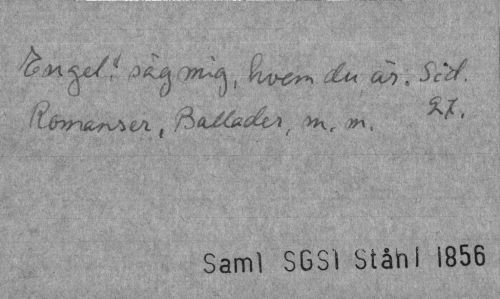 Engel! säg mig, hvem du är. Sid.
Romanser, Ballader, m. m. 27.
Saml SGSl Ståhl 1856